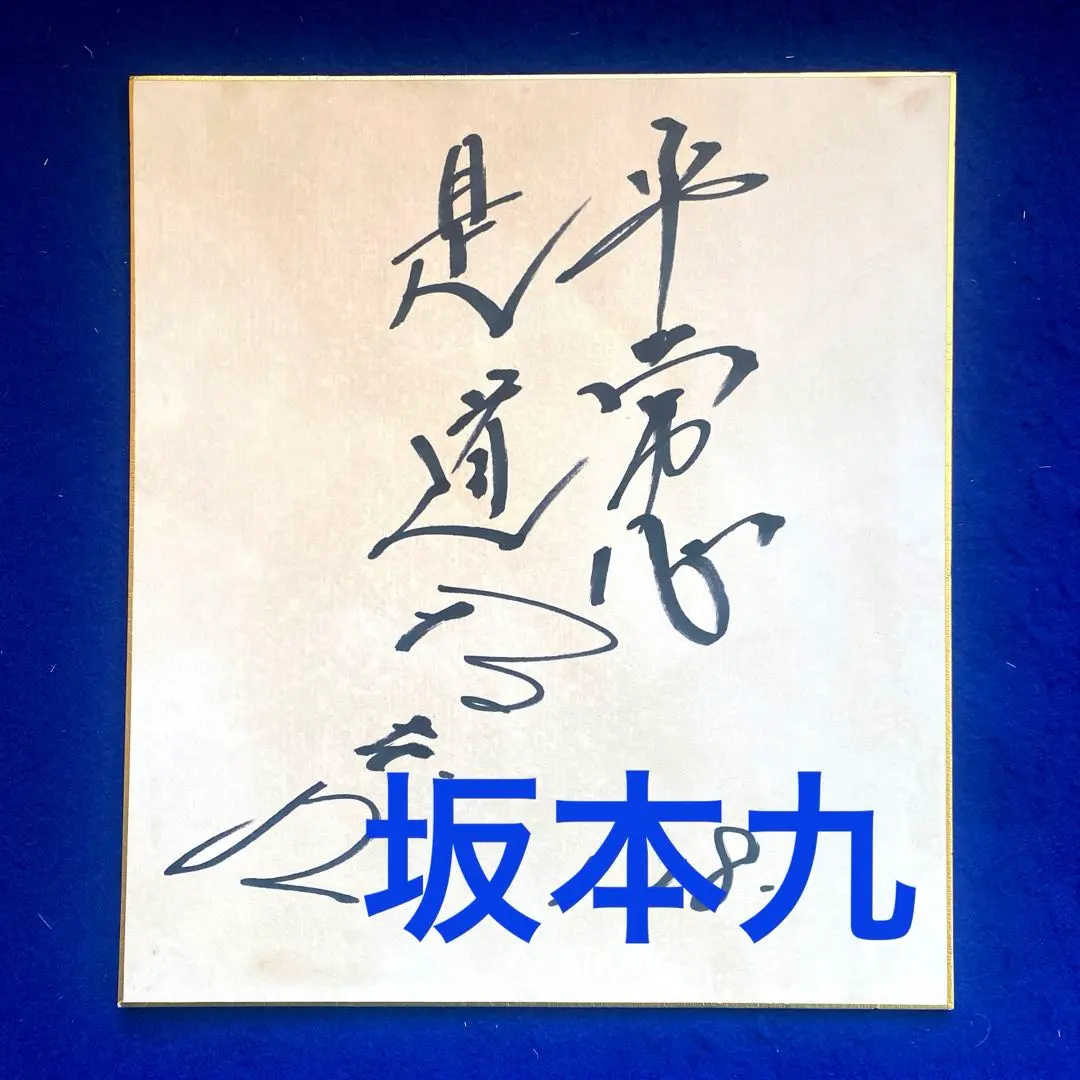 平常心
是道
坂本九
8.